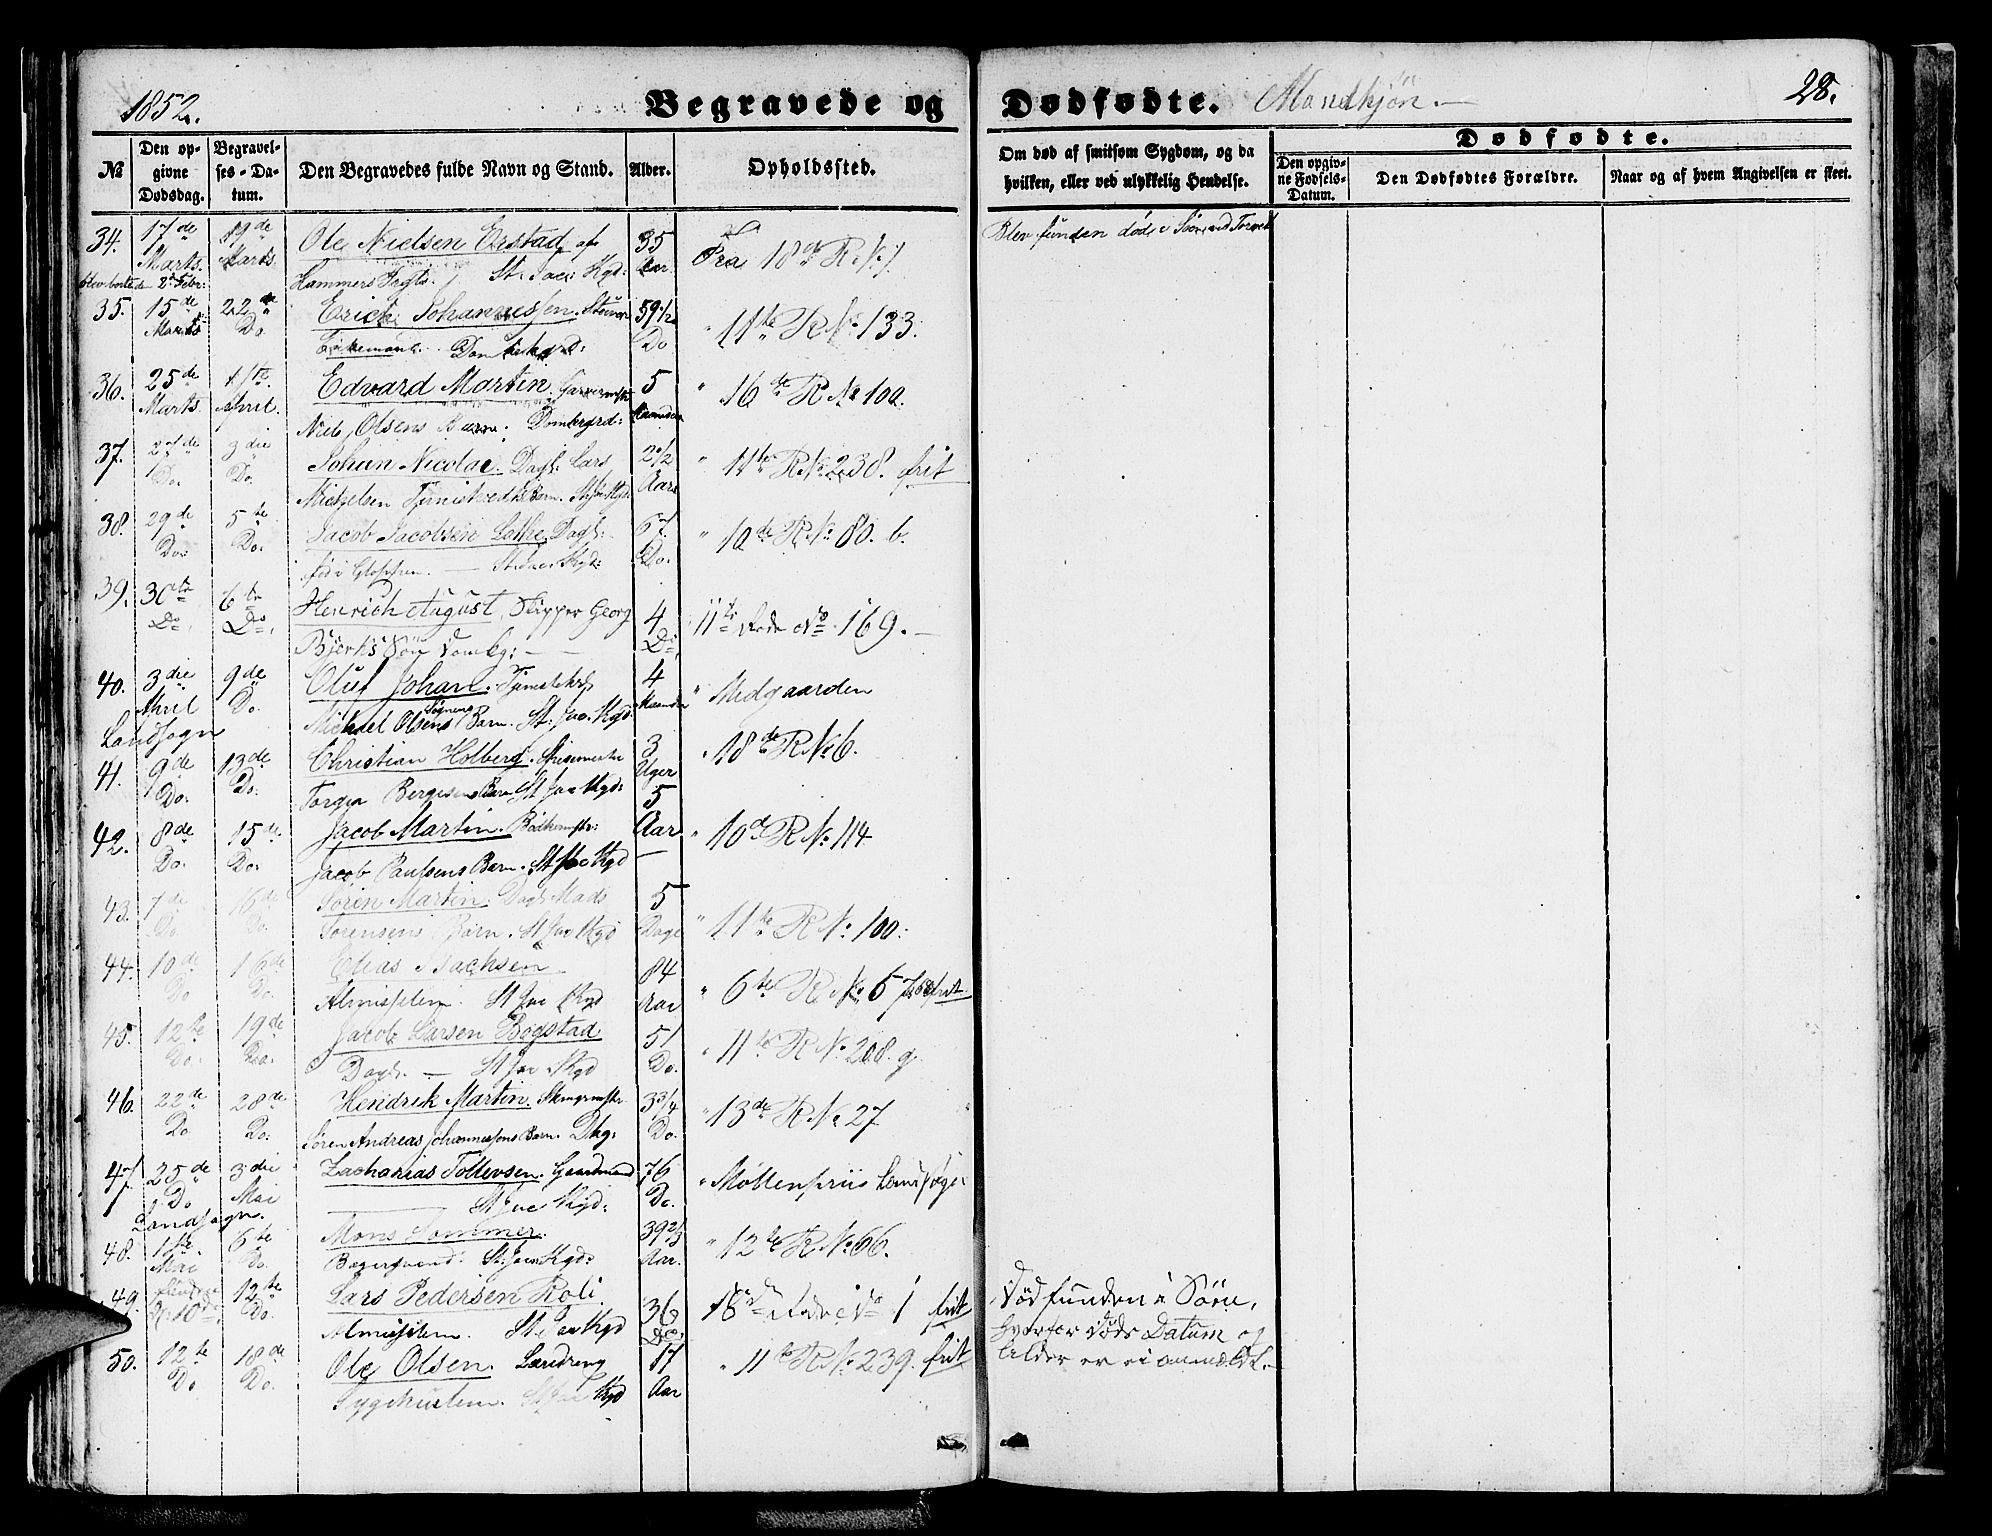 1852.
Begravede og Dødfødte. Mandkjøn.
28.
№
Den opgivne Dødsdag.
Begravelses-Datum.
Den Begravedes fulde Navn og Stand.
Alder.
Opholdssted.
Om død af smitsom Sygdom, og da hvilken, eller ved ulykkelig Hendelse.
Dødfødte.
Den opgivne Fødsels-Datum.
Den Dødfødtes Forældre.
Naar og af hvem Angivelsen er skeet.
34. 17de Marts. 19de Marts Ole Nielsen Erstad af 35 Aar. Fra 18de R. № 1. Blev funden død i Søen ved Torvet
Hammers Prgts. St: Jac: Kgd:
35. 15de Marts 22de Do. Erich Johannessen. 59 1/2 Do " 11te R № 133.
Enkemand. Domkirkegrd:
36. 25de Marts 1ste April. Edvard Martin. Garvermstr 5 Maaneder " 16de R № 100.
Niels Olsens Barn. Domkgrd:
37. 27de Do. 3die Do. Johan Nicolai. Dagl: Lars 2 1/2 Aar " 11te R. № 238. frit
Michelsen Tjemstveds Barn. St Jac Kgd.
38. 29de Do. 5te Do. Jacob Jacobsen Lothe Dagl: 67 Do. " 10de R. № 80. b.
fød i Gloppen. — St. Jac. Kgd:
39. 30te Do 6te Do. Henrich August, Skipper Georg 4 Do. 11te Rode № 169. —
Bjerks Søn Domkg: —
40. 3die April 9de Do. Oluf Johan. Tjenestekrl 4 Maaneder " Medgaarden
Landsogn Michael Olsens Sognens Barn. St. Jac. Kgd:
41. 9de Do. 13de Do. Christian Holberg. 3 Uger " 18de R № 6.
Torger Bergesens Barn St Jac Kgd:
42. 8de Do. 15de Do. Jacob Martin. Bødkermstr: 5 Aar " 10de R № 114
Jacob Paulsens Barn. St Jac Kgd
43. 7de Do. 16de Do. Søren Martin. Dagl. Mads 5 Dage " 11te R № 100:
Sørensens Barn. St Jac Kgd
44. 10de Do 16de Do. Elias Isachsen 84 Aar " 6te R. № frit
Almisselem. St Jac Kgd
45. 12te Do. 19de Do. Jacob Larsen Bogstad 51 Do. " 11te R № 208. g.
Dagl. — St Jac Kgd
46. 22de Do 28de Do. Hendrik Martin. 3 3/4 Do. " 13de R № 27
Søren Andreas Johannessons Barn. Dkg:
47. 25de Do 3die Mai Zacharias Tollevsen. Gaardmand 76 Do. " Møllenpriis Landsogn
Landsogn. St Jac Kgd:
48. 1ste Mai 6te Do. Mons Sommer. 39 2/3 Aar. " 12te R № 66.
Bagersvend. St. Jac Kgd:
49. 10de 12te Do. Lars Pedersen Roli. 36 Do. 18de Rode № 1 frit Død funden i Søen,
Almisselem. St Jac Kgd hvorfor Døds Datum og
50. 12te Do 18de Do. Ole Olsen. Læredreng 17 Aar " 11te R № 239. frit Alder er ei anmeldt.—
Sygehuslem. St Jac Kgd